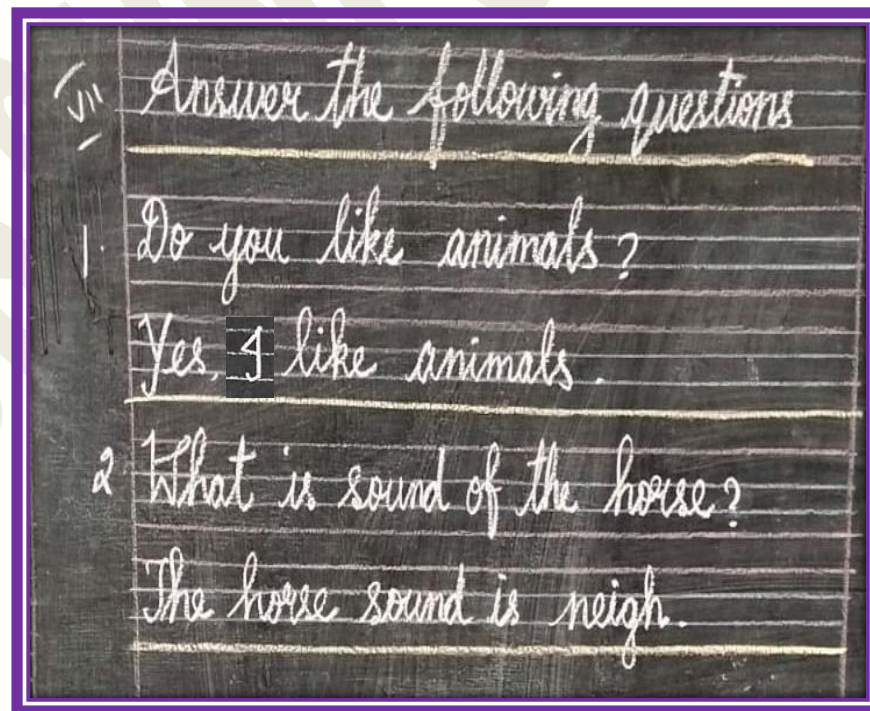 VII Answer the following questions
1. Do you like animals?
Yes, I like animals.
2 What is sound of the horse?
The horse sound is neigh.